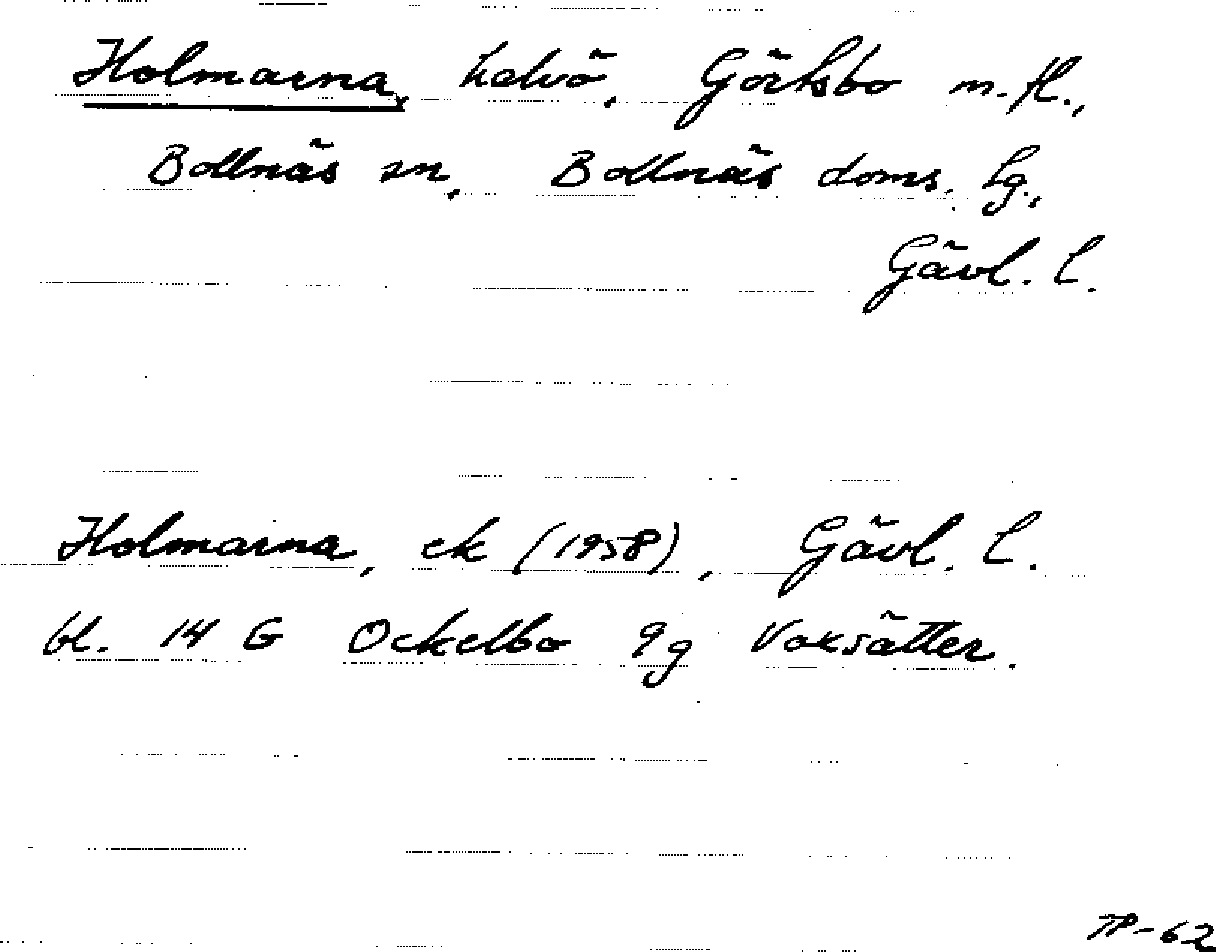 Holmarna, halvö, Görtsbo m.fl.,
Bollnäs sn, Bollnäs doms. lg.,
Gävl. l.
Holmarna, ek (1958), Gävl. l.
bl. 14 G Ockelbo 9g Voxsätter.
TP-62